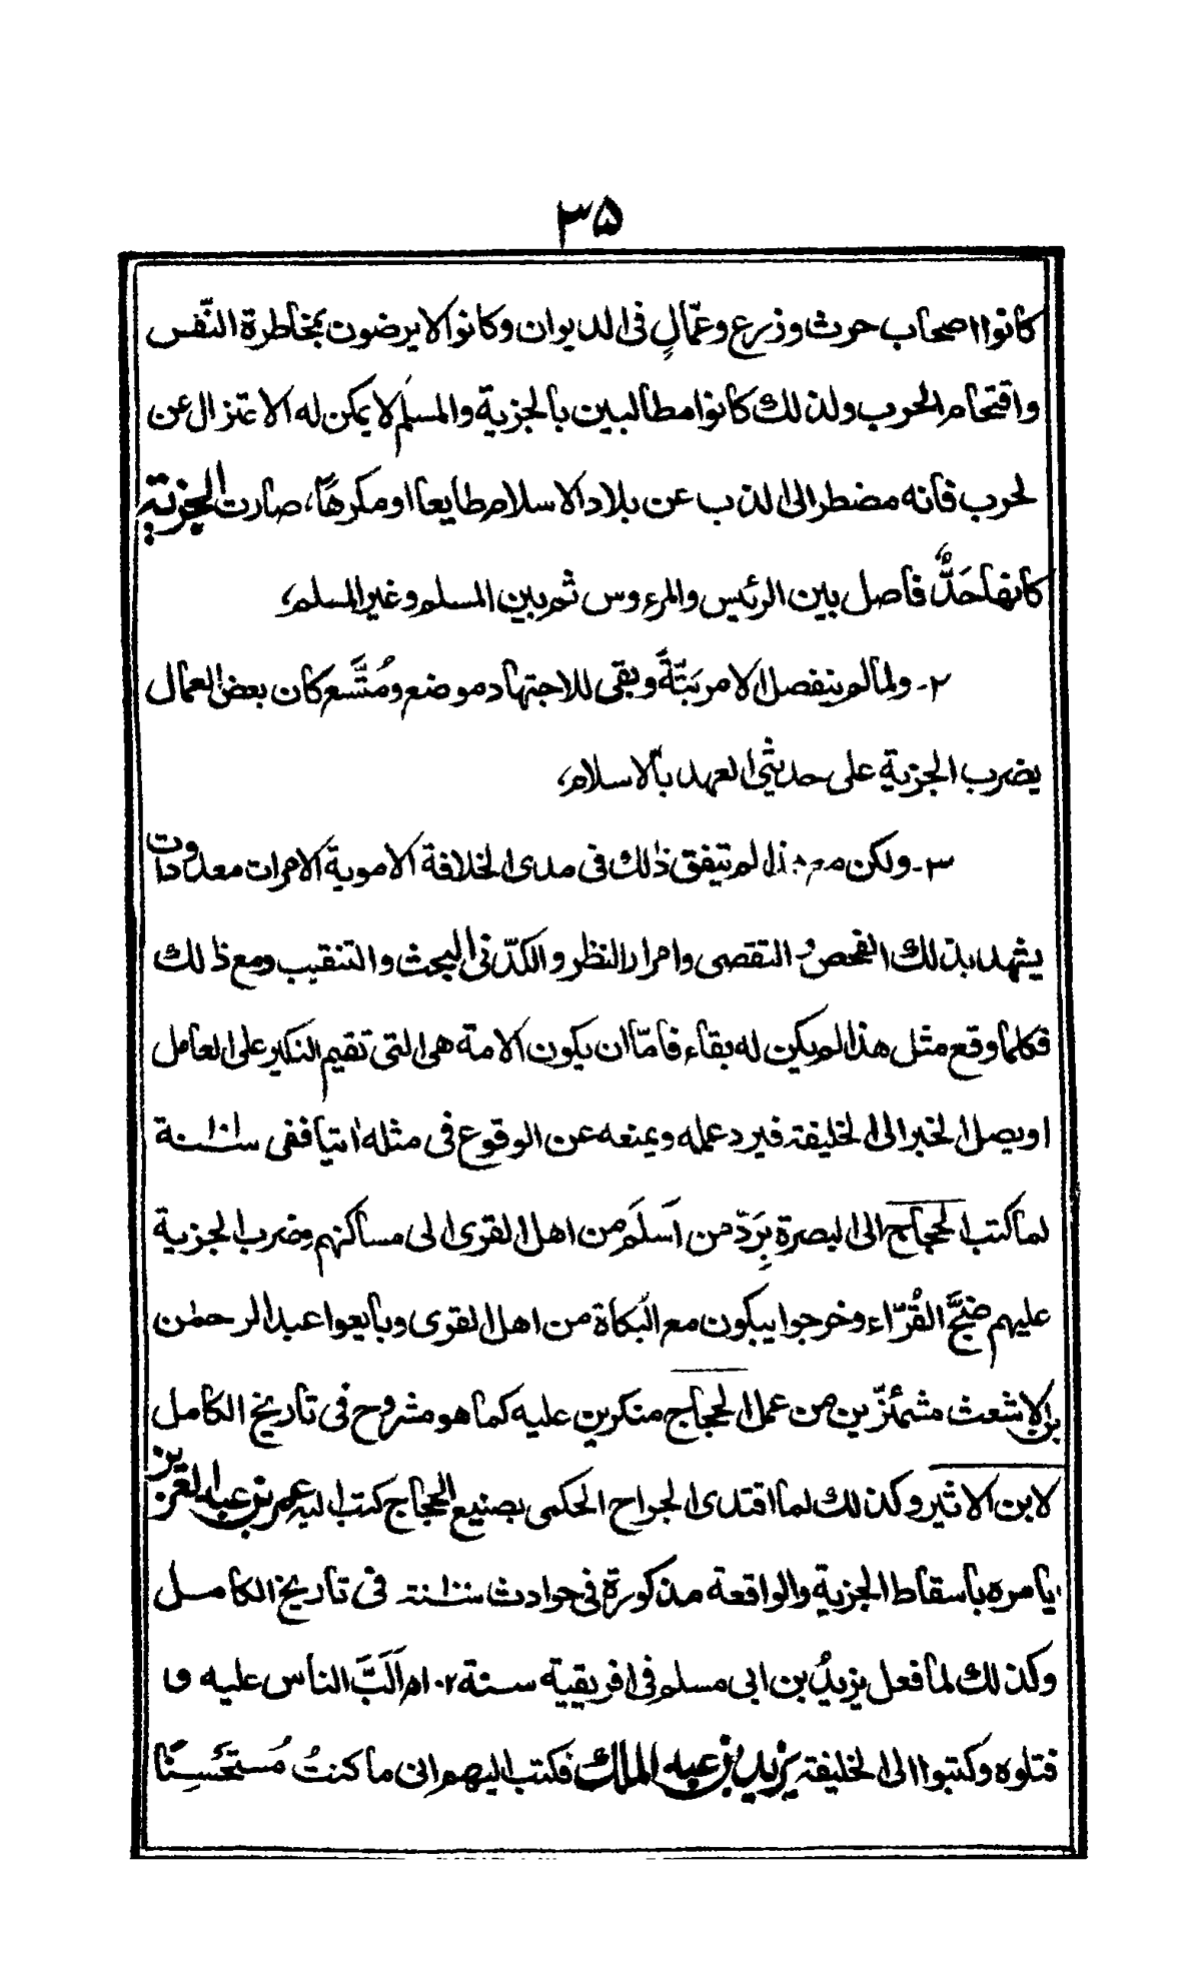 ۳۵
كانوا اصحاب حرث وزرع وعمّالٍ فى الديوان وكانوا لا يرضون بمخاطرة النّفس
واقتحام الحرب ولذلك كانوا مطالبين بالجزية والمسلم لا يمكن له الاعتزال عن
لحرب فانه مضطر الى الذب عن بلاد الاسلام طايعا او مكرهًا، صارت الجزية
كانها حَدٌّ فاصل بين الرئيس والمرءوس ثم بين المسلم وغير المسلم،
۲- ولما لم ينفصل الامر بَتّةً وبقى للاجتهاد موضع ومُتَّسع كان بعض العمال
يضرب الجزية على حديثى العهد بالاسلام،
۳- ولكن مع هذا لم يتفق ذالك فى مدى الخلافة الاموية الا مرات معدودات
يشهد بذلك الفحص والتقصى وامرار النظر والكدّ فى البحث والتنقيب ومع ذالك
فكلما وقع مثل هذا لم يكن له بقاء فامّا ان يكون الامة هى التى تقيم النكير على العامل
او يصل الخبر الى الخليفة فيرد عمله ويمنعه عن الوقوع فى مثله اٰتيا ففى سنة
لما كتب الحجاج الى البصرة بِرَدّ من اَسلَمَ من اهل القرى الى مساكنهم وضرب الجزية
عليهم ضَجَّ القُرّاء وخرجوا يبكون مع البُكاة من اهل القرى وبايعوا عبد الرحمٰن
بن الاشعث مشمئزّين من عمل الحجاج منكرين عليه كما هو مشروح فى تاريخ الكامل
لابن الاثير وكذلك لما اقتدى الجراح الحكمى بصنيع الحجاج كتب اليه عمر بن عبد العزيز
يامره باسقاط الجزية والواقعة مذكورة فى حوادث سنة فى تاريخ الكامل
وكذلك لما فعل يزيدُ بن ابى مسلم فى افريقية سنة ۱۰۲ھ اَلَبَّ الناس عليه و
قتلوه وكتبوا الى الخليفة يزيد بن عبد الملك فكتب اليهم انى ما كنتُ مُستَحسِنًا